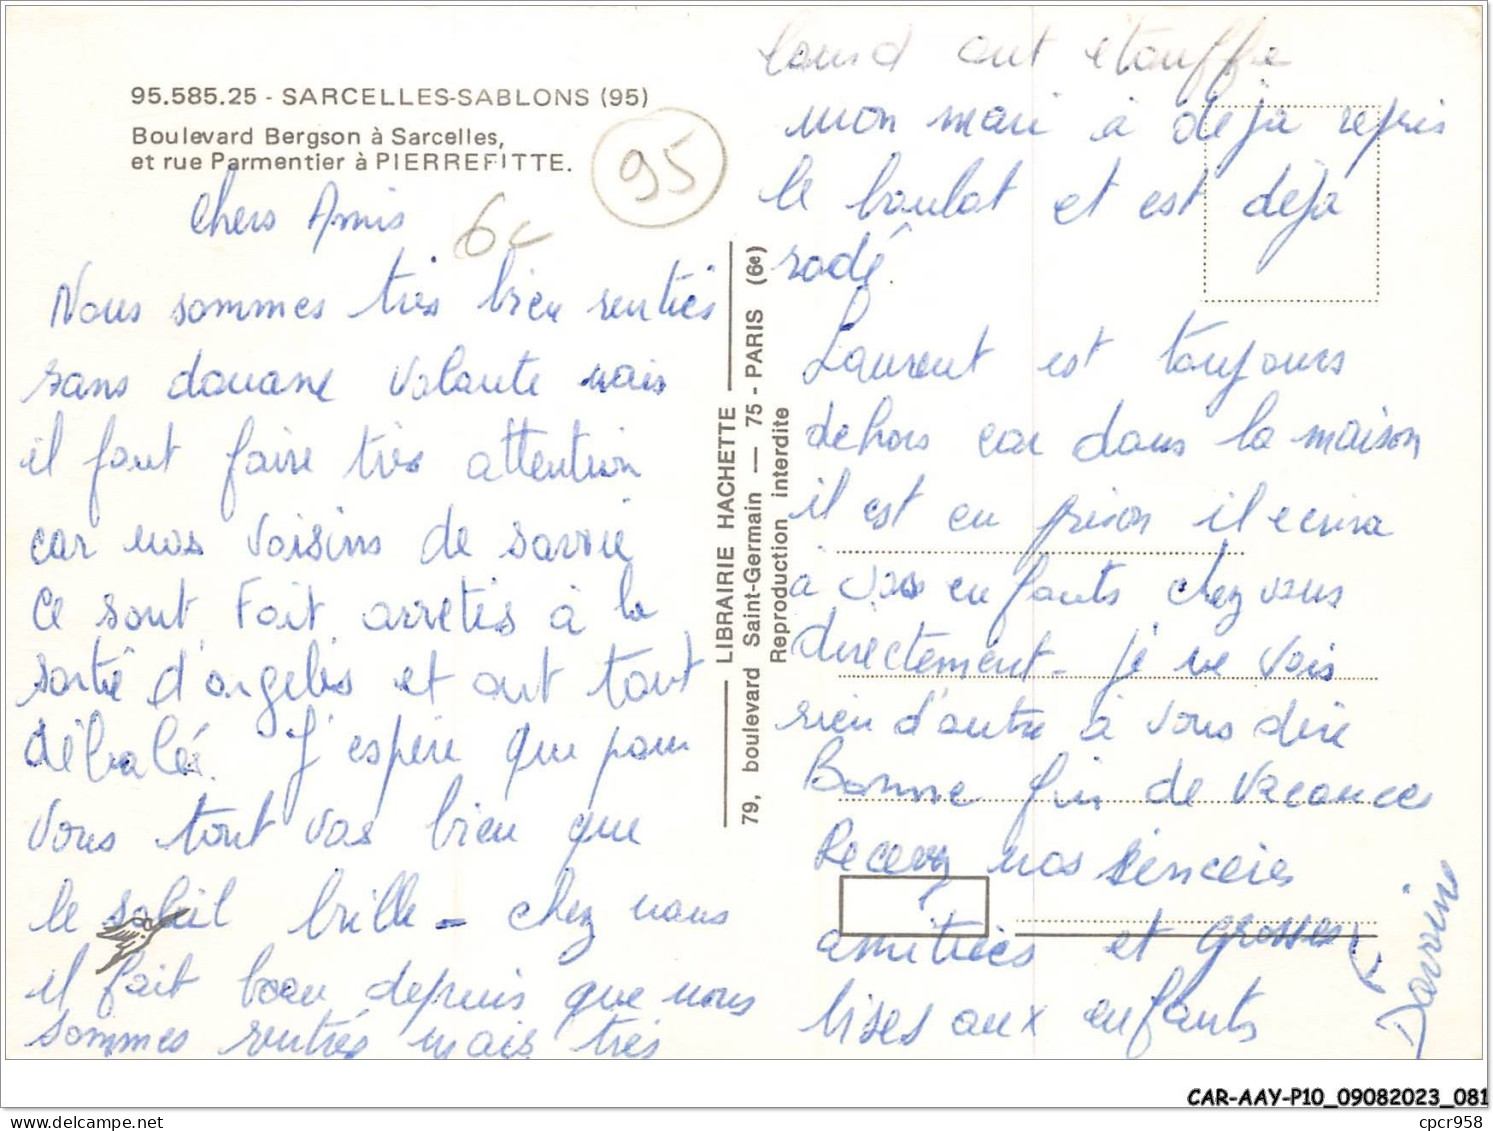 95.585.25 - SARCELLES-SABLONS (95)
Boulevard Bergson à Sarcelles,
et rue Parmentier à PIERREFITTE.
95
6€
Chers Amis
Nous sommes très bien rentrés
sans douane volante mais
il faut faire très attention
car nos voisins de savoie
Ce sont Fait arretés à la
sortie d'angeles et ont tout
déballé. J'espère que pour
Vous tout vas bien que
le soleil brille - chez nous
il fait beau depuis que nous
sommes rentrés mais très
lourd ont étouffe
mon mari à déja repris
le boulot et est déja
rodé.
Laurent est toujours
dehors car dans la maison
il est en prison il ecrira
à vos enfants chez vous
directement - je ne vois
rien d'autre à vous dire
Bonne fin de vacances
Recevez nos sincères
amitiées et grosses
bises aux enfants
LIBRAIRIE HACHETTE
79, boulevard Saint-Germain — 75 - PARIS (6e)
Reproduction interdite
CAR-AAY-P10_09082023_081
cpcr958